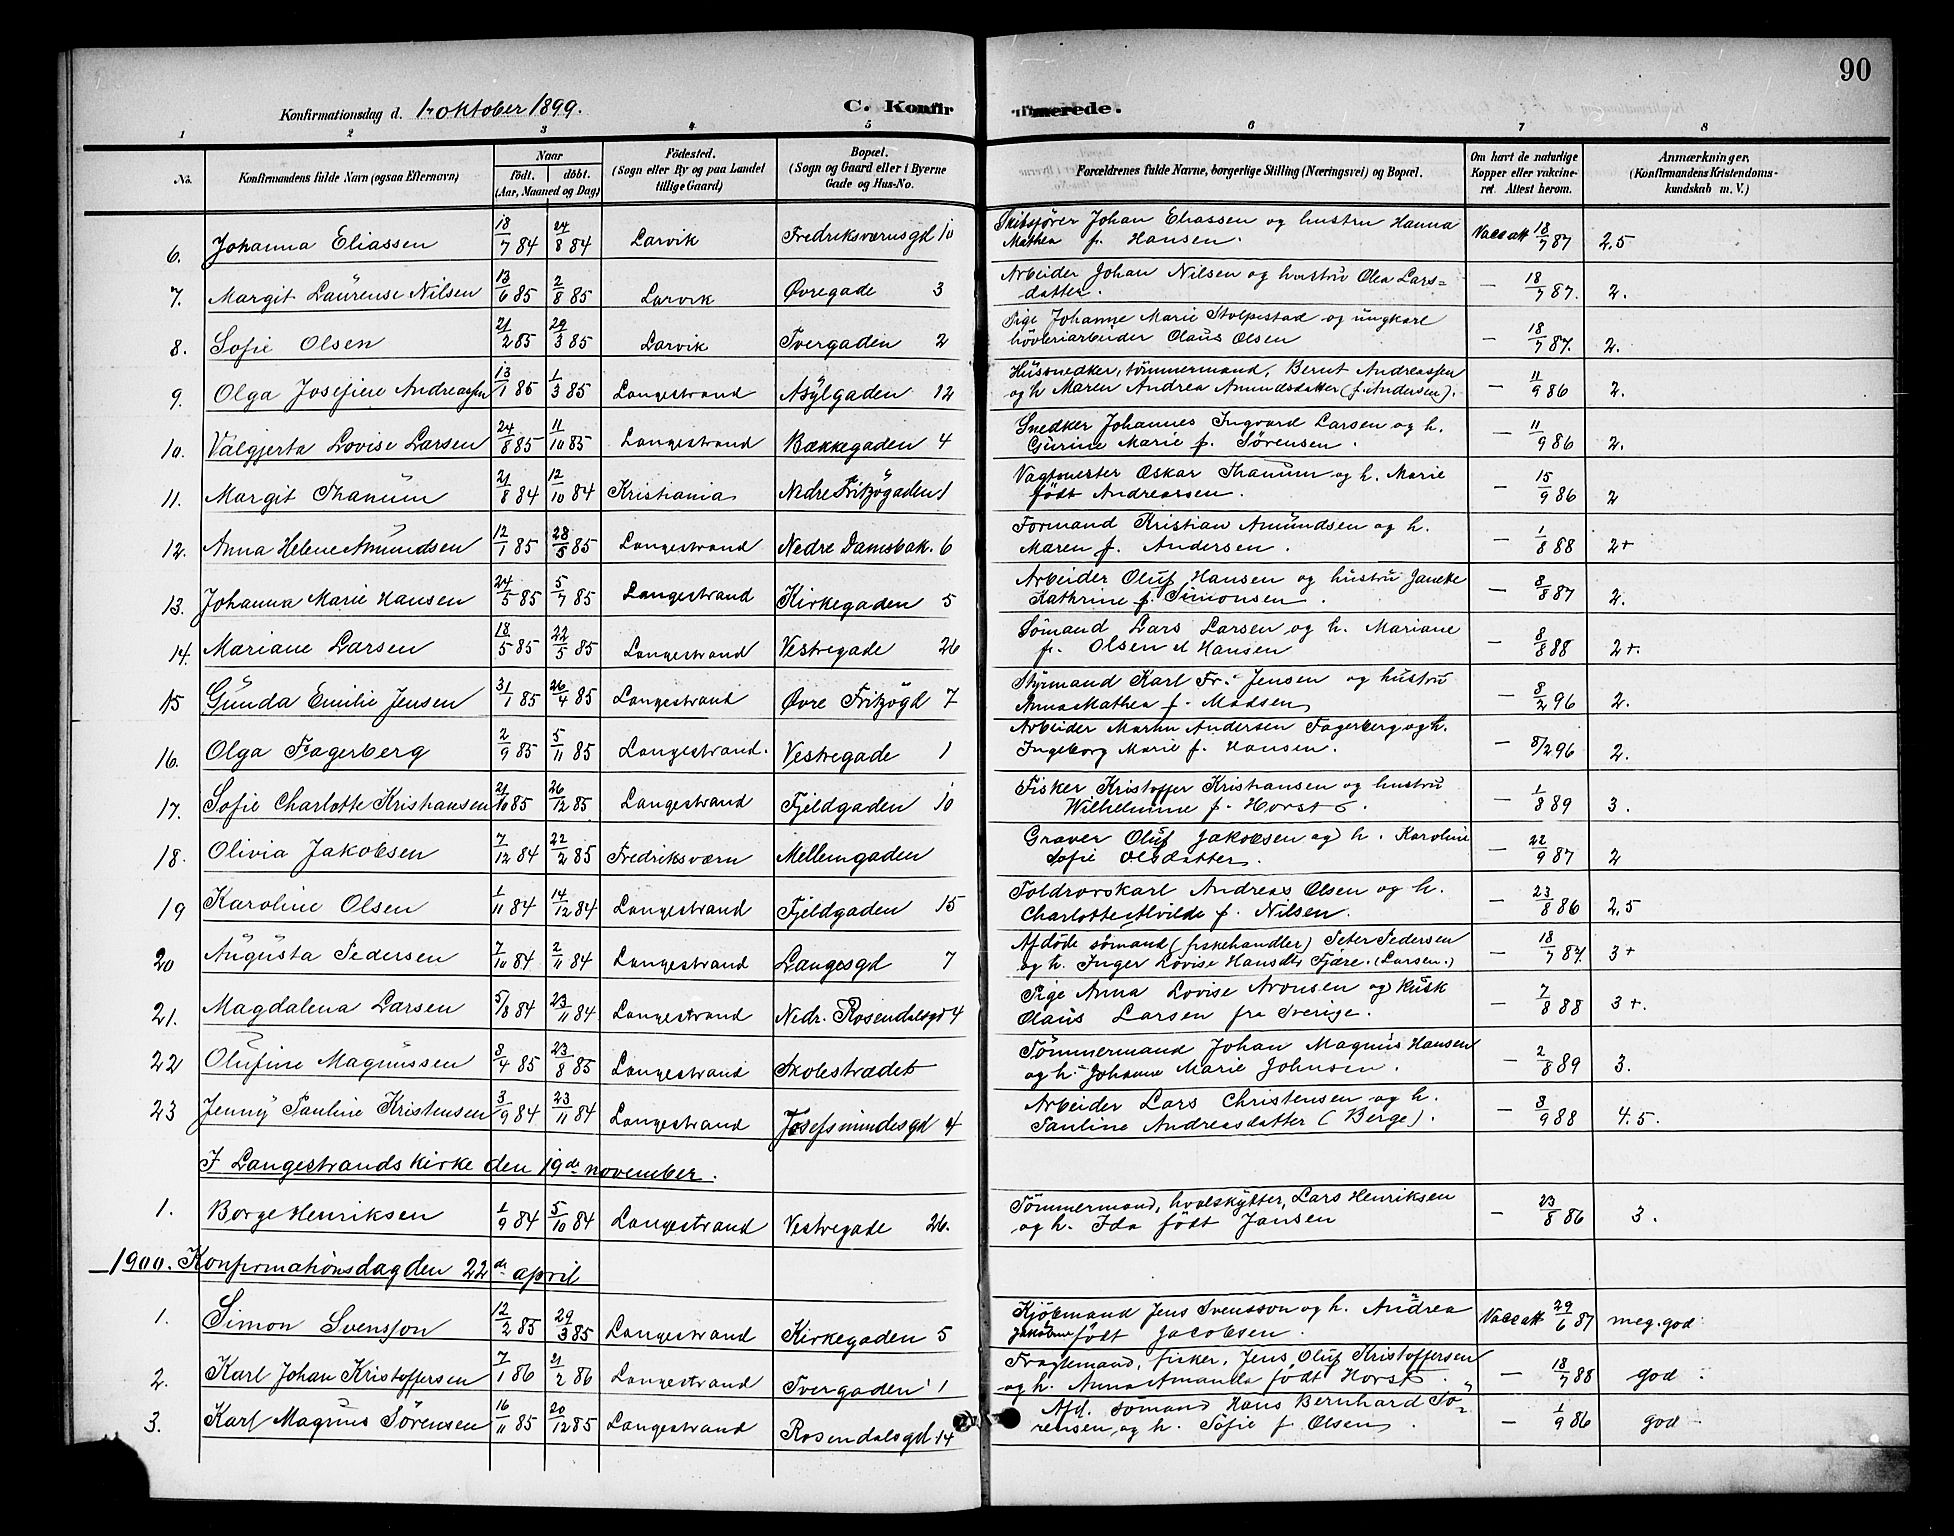 90
Konfirmationsdag d. 1. oktober 1899. C. Konfirmerede.
1 2 3 4 5 6 7 8
No. Konfirmandens fulde Navn (ogsaa Efternavn) Naar født. døbt. (Aar, Maaned og Dag) Fødested. (Sogn eller By og paa Landet tillige Gaard) Bopæl. (Sogn og Gaard eller i Byerne Gade og Hus-No. Forældrenes fulde Navne, borgerlige Stilling (Næringsvei) og Bopæl. Om havt de naturlige Kopper eller vakcineret. Attest herom. Anmærkninger, (Konfirmandens Kristendomskundskab m. V.)
6. Johanna Eliassen 18/7 84 24/8 84 Larvik Fredriksværnsgd 10 Skibsfører Johan Eliassen og hustru Hanna
Mathea f. Hansen. Vacc att 18/7 87 2,5
7. Margit Laurense Nilsen 13/6 85 2/8 85 Larvik Øvregade 3 Arbeider Johan Nilsen og hustru Olea Lars=
datter. — 18/7 87. 2.
8. Sofie Olsen 21/2 85 29/3 85 Larvik Tvergaden 2 Pige Johanne Marie Stolpestad og ungkarl
høvleriarbeider Olaus Olsen — 18/7 87. 2.
9. Olga Josefine Andreassen 13/1 85 1/3 85 Langestrand Asylgaden 12 Hussnedker, tømmermand, Bernt Andreassen
og h. Maren Andrea Amundsdatter (f. Andersen). — 11/9 86 2.
10. Valgjerta Lovise Larsen 24/8 85 11/10 85 Langestrand Bækkegaden 4 Snedker Johannes Ingvard Larsen og h.
Gurine Marie f. Sørensen. — 11/9 86 2.
11. Margit Thanum 21/8 84 12/10 84 Kristiania Nedre Fritzøgaden 1 Vagtmester Oskar Thanum og h. Marie
født Andreassen. — 15/9 86 2
12. Anna Helene Amundsen 12/1 85 28/5 85 Langestrand Nedre Damsbak. 6 Formand Kristian Amundsen og h.
Maren f. Andersen. — 1/8 88 2+
13. Johanna Marie Hansen 24/5 85 5/7 85 Langestrand Kirkegaden 5 Arbeider Oluf Hansen og hustru Janeke
Kathrine f. Simonsen. — 8/8 87 2.
14. Mariane Larsen 18/5 85 22/5 85 Langestrand Vestregade 26 Sømand Lars Larsen og h. Mariane
f. Olsen el Hansen — 8/8 88 2+.
15 Gunda Emilie Jensen 31/1 85 26/4 85 Langestrand Øvre Fritzøgd 7 Styrmand Karl Fr. Jensen og hustru
Anna Mathea f. Madsen — 8/2 96 2.
16. Olga Fagerberg 2/9 85 5/11 85 Langestrand. Vestregade 1 Arbeider Martin Andersen Fagerberg og h.
Ingeborg Marie f. Hansen. — 8/2 96 2.
17. Sofie Charlotte Kristiansen 21/10 85 26/12 85 Langestrand Fjeldgaden 10 Fisker Kristoffer Kristiansen og hustru
Wilhelmine f. Horst. — 1/8 89 3.
18. Olivia Jakobsen 7/12 84 22/2 85 Fredriksværn Mellemgaden Graver Oluf Jakobsen og h. Karoline
Sofie Olsdatter. — 22/9 87 2
19 Karoline Olsen 1/11 84 14/12 84 Langestrand Fjeldgaden 15 Toldrorskarl Andreas Olsen og h.
Charlotte Alvilde f. Nilsen. — 23/8 86 2,5
20 Augusta Pedersen 7/10 84 2/11 84 Langestrand Langesgd 7 Afdøde sømand (fiskehandler) Peter Pedersen
og h. Inger Lovise Hansdtr Fjære. (Larsen.) — 18/7 87. 3+
21. Magdalena Larsen 5/8 84 23/11 84 Langestrand Nedr. Rosendalsgd 4 Pige Anna Lovise Aronsen og kusk
Olaus Larsen fra Sverige. — 7/8 88 3+.
22 Olufine Magnussen 8/4 85 23/8 85 Langestrand Skolestrædet Tømmermand Johan Magnus Hansen
og h. Johanne Marie Johnsen. — 2/8 89 3.
23 Jenny Pauline Kristensen 3/9 84 23/11 84 Langestrand Josefsmindesgd 4 Arbeider Lars Christensen og h.
Pauline Andreasdatter (Berge). — 8/9 88 4.5.
I Langestrands kirke den 19de november.
1. Borge Henriksen 1/9 84 5/10 84 Langestrand Vestregade 26. Tømmermand, hvalskytter, Lars Henriksen
og h. Ida født Jansen — 23/8 86 3.
1900. Konfirmationsdag den 22de april
1. Simon Svensson 12/2 85 29/3 85 Langestrand Kirkegaden 5 Kjøbmand Jens Svensson og h. Andrea
Jakobine født Jacobsen. Vacc att 29/6 87 meg. god
2. Karl Johan Kristoffersen 7/1 86 21/2 86 Langestrand Tvergaden 1 Fragtemand, fisker, Jens Oluf Kristoffersen
og h. Anna Amanda født Horst. — 18/7 88 god
3. Karl Magnus Sørensen 16/11 85 20/12 85 Langestrand Rosendalsgd 14 Afd. sømand Hans Bernhard Sø=
rensen og h. Sofie f. Olsen. — 1/9 86 god